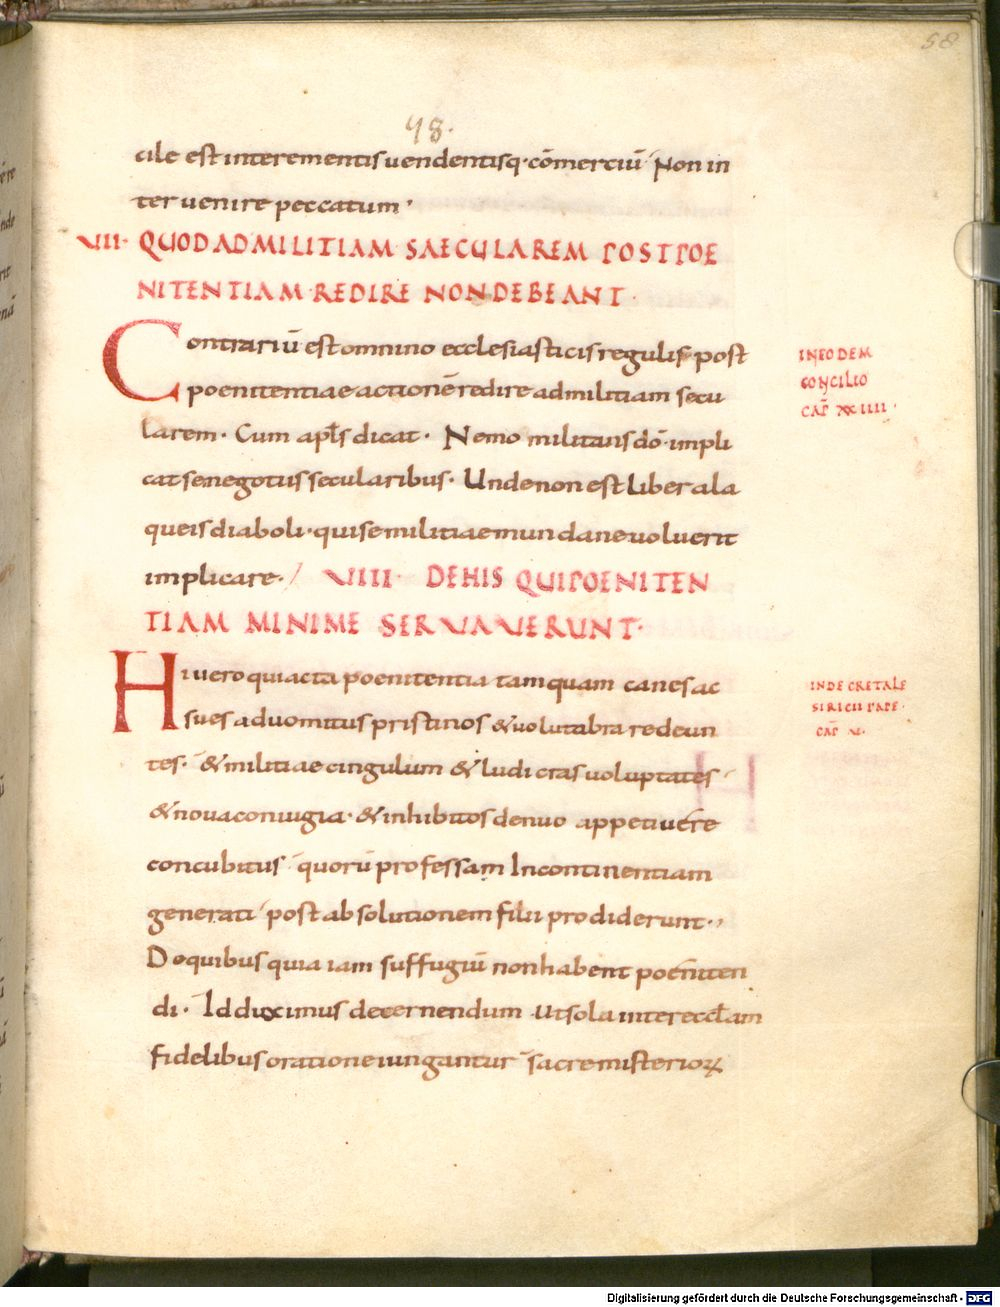 58
98.
cile est inter ementis uendentisq· cōmerciū Non in
ter uenire peccatum·
VII· QUOD AD MILITIAM SAECULAREM POST POE
NITENTIAM REDIRE NON DEBEANT·
Contrariū est omnino ecclesiasticis regulis post
IN EODEM
poenitentiae actionē redire ad militiam secu
CONCILIO
larem· Cum apl̄s dicat· Nemo militans dō impli
CAP̄ XXIIII·
cat se negotiis secularibus· Unde non est liber a la
queis diaboli· qui se militiae mundane uoluerit
implicare· / VIIII· DE HIS QUI POENITEN
TIAM MINIME SERVAVERUNT·
Hi uero qui acta poenitentia tamquam canes ac
IN DECRETALE
sues ad uomitus pristinos & uolutabra redeun
SIRICII PAPE·
tes· & militiae cingulum & ludicras uoluptates
CAP̄ V·
& noua coniugia· & inhibitos denuo appetiuere
concubitus quorū professam Incontinentiam
generati post absolutionem filii prodiderunt·,
De quibus quia iam suffugiū non habent poeniten
di· Id duximus decernendum ut sola inter eccl̄am
fidelibus oratione iungantur sacre misterioꝝ
Digitalisierung gefördert durch die Deutsche Forschungsgemeinschaft - DFG